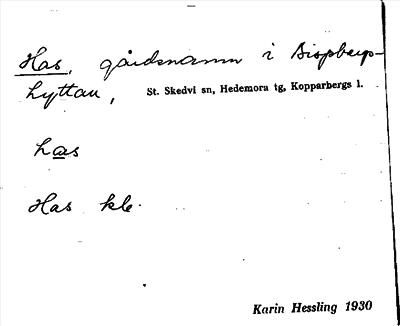 Has, gårdsnamn i Bispbergs-
hyttan, St. Skedvi sn, Hedemora tg, Kopparbergs l.
has
Has kle.
Karin Hessling 1930